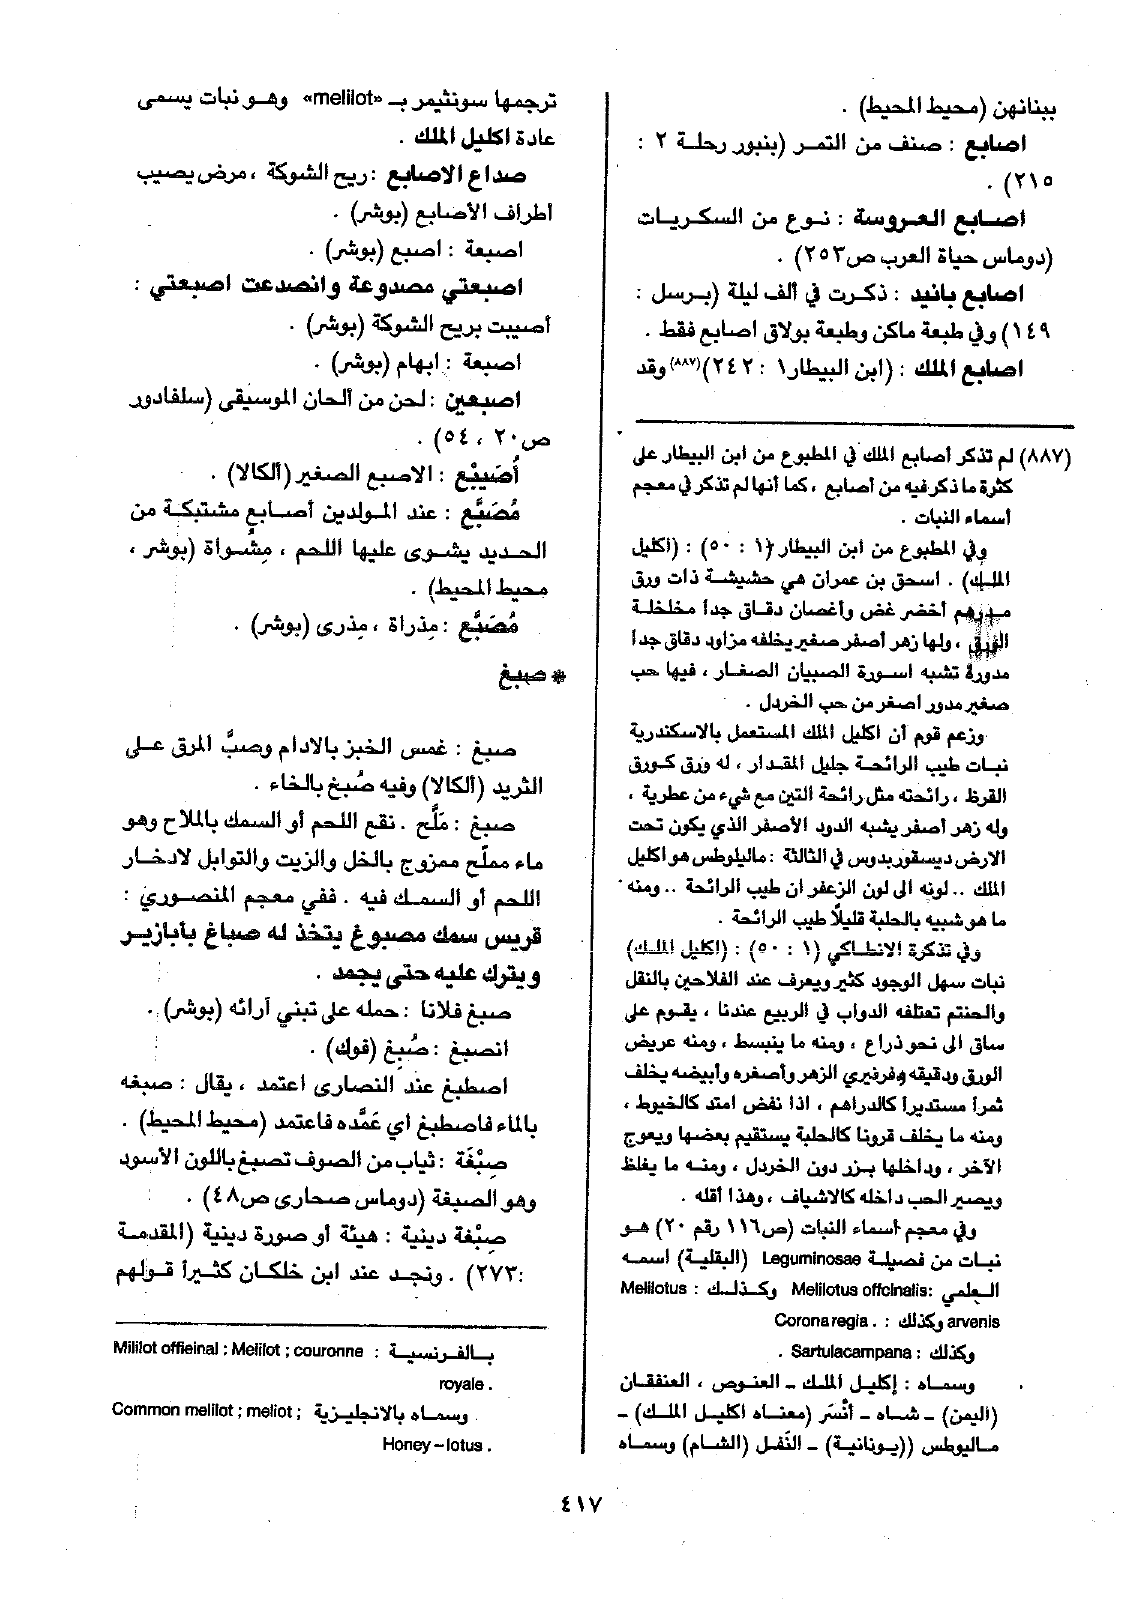 ببنانهن (محيط المحيط) .
اصابع : صنف من التمر (بنبور رحلة ٢ :
٢١٥) .
اصابع العروسة : نوع من السكريات
(دوماس حياة العرب ص٢٥٣) .
اصابع بانيد : ذكرت في ألف ليلة (برسل :
١٤٩) وفي طبعة ماكن وطبعة بولاق اصابع فقط .
اصابع الملك : (ابن البيطار١ : ٢٤٢)(٨٨٧) وقد
(٨٨٧) لم تذكر أصابع الملك في المطبوع من ابن البيطار على
كثرة ما ذكر فيه من أصابع ، كما أنها لم تذكر في معجم
أسماء النبات .
وفي المطبوع من ابن البيطار (١ : ٥٠) : (اكليل
الملك) . اسحق بن عمران هي حشيشة ذات ورق
مدرهم أخضر غض وأغصان دقاق جداً مخلخلة
الورق ، ولها زهر أصفر صغير يخلفه مزاود دقاق جداً
مدورة تشبه اسورة الصبيان الصغار ، فيها حب
صغير مدور اصغر من حب الخردل .
وزعم قوم أن اكليل الملك المستعمل بالاسكندرية
نبات طيب الرائحة جليل المقدار ، له ورق كورق
القرظ ، رائحته مثل رائحة التين مع شيء من عطرية ،
وله زهر أصفر يشبه الدود الأصفر الذي يكون تحت
الارض ديسقوريدوس في الثالثة : ماليلوطس هو اكليل
الملك .. لونه الى لون الزعفر ان طيب الرائحة .. ومنه
ما هو شبيه بالحلبة قليلاً طيب الرائحة .
وفي تذكرة الانطاكي (١ : ٥٠) : (اكليل الملك)
نبات سهل الوجود كثير ويعرف عند الفلاحين بالنقل
والحنتم تعتلفه الدواب في الربيع عندنا ، يقوم على
ساق الى نحو ذراع ، ومنه ما ينبسط ، ومنه عريض
الورق ودقيقه وفرفيري الزهر وأصفره وأبيضه يخلف
ثمراً مستديراً كالدراهم ، اذا نفض امتد كالخيوط ،
ومنه ما يخلف قرونا كالحلبة يستقيم بعضها ويعوج
الآخر ، وداخلها بزر دون الخردل ، ومنه ما يغلظ
ويصير الحب داخله كالاشياف ، وهذا أقله .
وفي معجم أسماء النبات (ص١١٦ رقم ٢٠) هو
نبات من فصيلة Leguminosae (البقلية) اسمه
العلمي :Melilotus offcinalis وكذلك : Melilotus
arvenis وكذلك : . Corona regia
وكذلك : Sartulacampana .
وسماه : إكليل الملك ـ العنوص ، العنفقان
(اليمن) ـ شاه ـ أفْسَر (معناه اكليل الملك) ـ
ماليوطس ((يونانية) ـ النَفل (الشام) وسماه
ترجمها سونثيمر بـ «melilot» وهو نبات يسمى
عادة اكليل الملك .
صداع الاصابع : ريح الشوكة ، مرض يصيب
أطراف الأصابع (بوشر) .
اصبعة : اصبع (بوشر) .
اصبعتي مصدوعة وانصدعت اصبعتي :
أصيبت بريح الشوكة (بوشر) .
اصبعة : ابهام (بوشر) .
اصبعين : لحن من ألحان الموسيقى (سلفادور
ص٢٠ ، ٥٤) .
أُصَيْبْع : الاصبع الصغير (ألكالا) .
مُصَبَّع : عند المولدين أصابع مشتبكة من
الحديد يشوى عليها اللحم ، مِشْواة (بوشر ،
محيط المحيط) .
مُصَبَّع : مِذراة ، مِذرى (بوشر) .
* صبغ
صبغ : غمس الخبز بالادام وصبَّ المرق على
الثريد (ألكالا) وفيه صُبغ بالخاء .
صبغ : مَلَّح . نقع اللحم أو السمك بالملاح وهو
ماء مملّح ممزوج بالخل والزيت والتوابل لادخار
اللحم أو السمك فيه . ففي معجم المنصوري :
قريس سمك مصبوغ يتخذ له صباغ بأبازير
ويترك عليه حتى يجمد .
صبغ فلانا : حمله على تبني آرائه (بوشر) .
انصبغ : صُبِغ (فوك) .
اصطبغ عند النصارى اعتمد ، يقال : صبغه
بالماء فاصطبغ أي عَمَّده فاعتمد (محيط المحيط) .
صِبْغَة : ثياب من الصوف تصبغ باللون الأسود
وهو الصبغة (دوماس صحارى ص٤٨) .
صِبْغة دينية : هيئة أو صورة دينية (المقدمة
:٢٧٣) . ونجد عند ابن خلكان كثيراً قولهم
بالفرنسية : Mililot offieinal ; Melilot ; couronne
royale .
وسماه بالانجليزية Common melilot ; meliot ;
Honey – lotus .
٤١٧